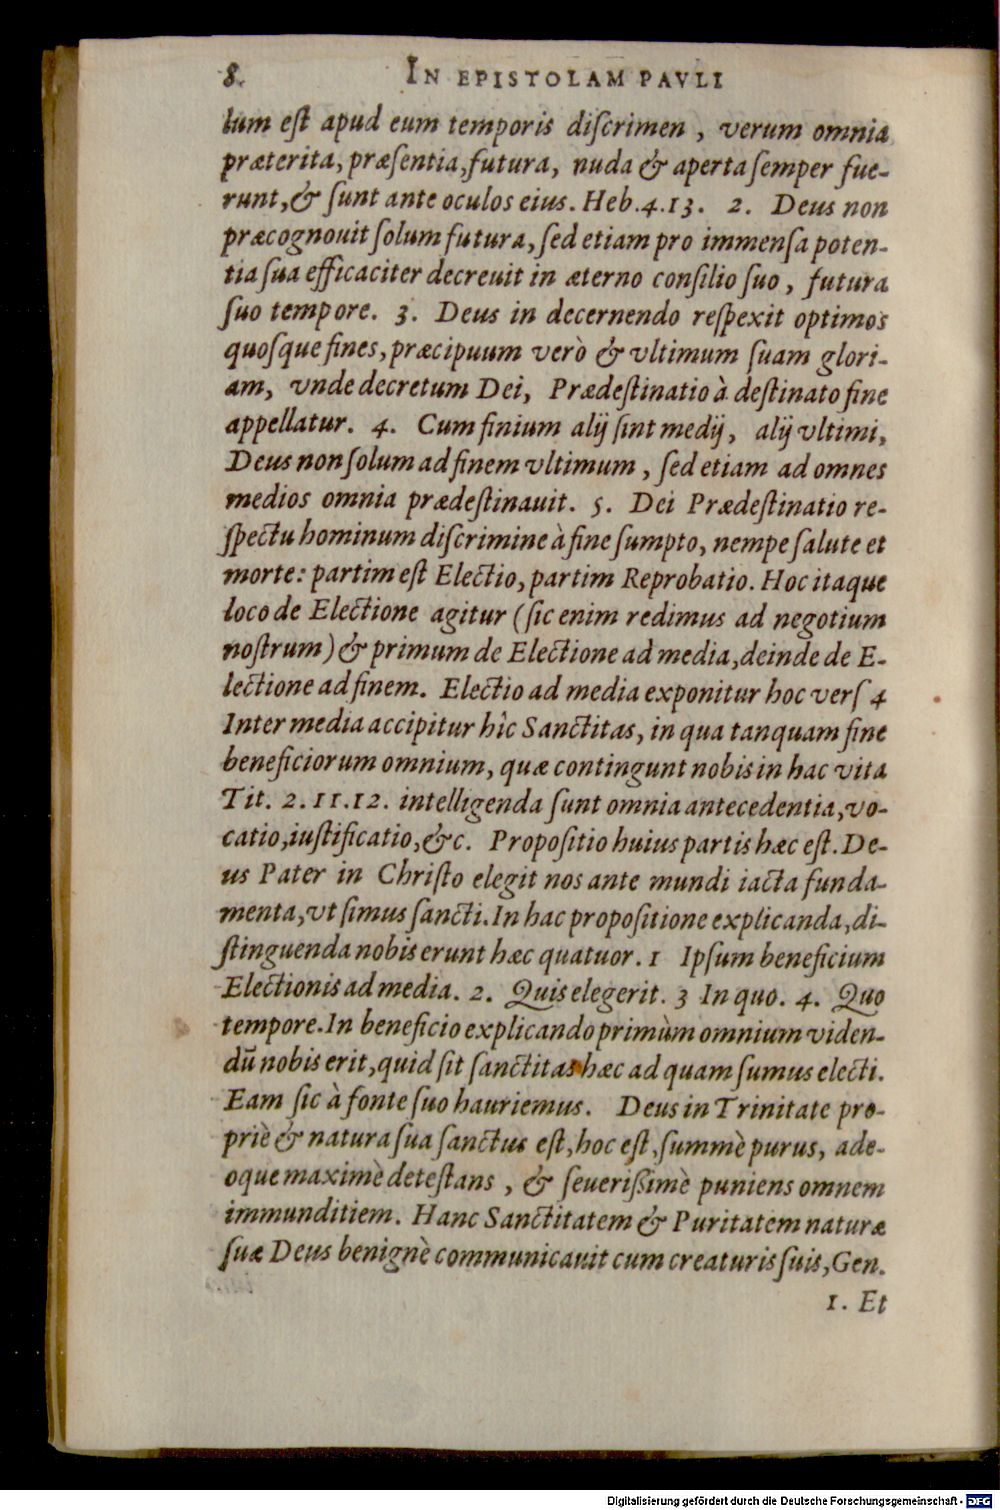 8. IN EPISTOLAM PAVLI
lum eſt apud eum temporis diſcrimen, verum omnia
præterita, præſentia, futura, nuda & aperta ſemper fue-
runt, & ſunt ante oculos eius. Heb. 4. 13. 2. Deus non
præcognouit ſolum futura, ſed etiam pro immenſa poten-
tia ſua efficaciter decreuit in æterno conſilio ſuo, futura
ſuo tempore. 3. Deus in decernendo reſpexit optimos
quoſque fines, præcipuum verò & vltimum ſuam glori-
am, vnde decretum Dei, Prædeſtinatio à deſtinato fine
appellatur. 4. Cum finium alij ſint medij, alij vltimi,
Deus non ſolum ad finem vltimum, ſed etiam ad omnes
medios omnia prædeſtinauit. 5. Dei Prædeſtinatio re-
ſpectu hominum diſcrimine à fine ſumpto, nempe ſalute et
morte: partim eſt Electio, partim Reprobatio. Hoc itaque
loco de Electione agitur (ſic enim redimus ad negotium
noſtrum) & primum de Electione ad media, deinde de E-
lectione ad finem. Electio ad media exponitur hoc verſ 4
Inter media accipitur hîc Sanctitas, in qua tanquam fine
beneficiorum omnium, quæ contingunt nobis in hac vita
Tit. 2. 11. 12. intelligenda ſunt omnia antecedentia, vo-
catio, iuſtificatio, &c. Propoſitio huius partis hæc eſt. De-
us Pater in Chriſto elegit nos ante mundi iacta funda-
menta, vt ſimus ſancti. In hac propoſitione explicanda, di-
ſtinguenda nobis erunt hæc quatuor. 1 Ipſum beneficium
Electionis ad media. 2. Quis elegerit. 3 In quo. 4. Quo
tempore. In beneficio explicando primùm omnium viden-
dū nobis erit, quid ſit ſanctitas hæc ad quam ſumus electi.
Eam ſic à fonte ſuo hauriemus. Deus in Trinitate pro-
priè & natura ſua ſanctus eſt, hoc eſt, ſummè purus, ade-
oque maximè deteſtans, & ſeueriſſimè puniens omnem
immunditiem. Hanc Sanctitatem & Puritatem naturæ
ſuæ Deus benignè communicauit cum creaturis ſuis, Gen.
1. Et
Digitalisierung gefördert durch die Deutsche Forschungsgemeinschaft - DFG